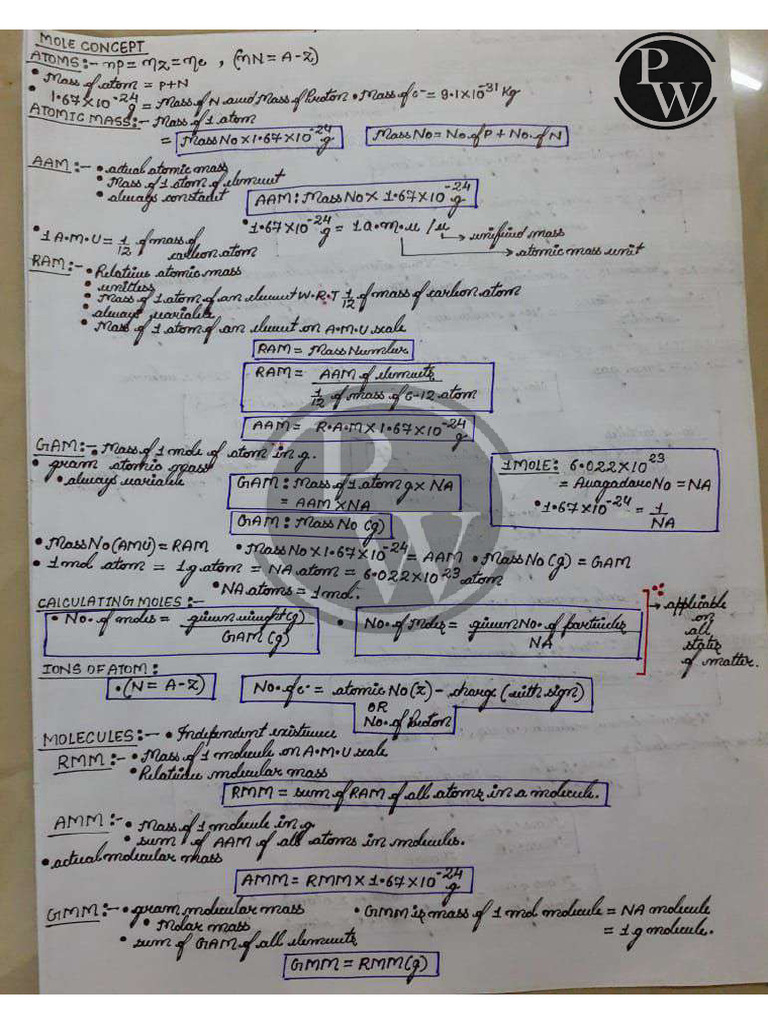 MOLE CONCEPT
PW
ATOMS:- np = nz = ne , (nN = A-Z)
• Mass of atom = P+N
• 1.67×10⁻²⁴ g = Mass of N and Mass of Proton • Mass of e⁻ = 9.1×10⁻³¹ Kg
ATOMIC MASS:- Mass of 1 atom
= Mass No × 1.67×10⁻²⁴ g
Mass No = No. of P + No. of N
AAM:- • actual atomic mass
• Mass of 1 atom of element
• always constant
AAM: Mass No × 1.67×10⁻²⁴ g
• 1.67×10⁻²⁴ g = 1 a.m.u / u
→ unified mass
→ atomic mass unit
• 1 A.M.U = 1/12 of mass of carbon atom
RAM:- • Relative atomic mass
• unitless
• Mass of 1 atom of an element W.R.T 1/12 of mass of carbon atom
• always variable
• Mass of 1 atom of an element on A.M.U scale
RAM = Mass Number
RAM = AAM of elements / 1/12 of mass of C-12 atom
AAM = R.A.M × 1.67×10⁻²⁴ g
GAM:- • Mass of 1 mole of atom in g.
• gram atomic mass
• always variable
GAM: Mass of 1 atom g × NA
= AAM × NA
GAM: Mass No (g)
1 MOLE: 6.022×10²³
= Avagadaro No = NA
• 1.67×10⁻²⁴ = 1/NA
• Mass No (AMU) = RAM • Mass No × 1.67×10⁻²⁴ = AAM • Mass No (g) = GAM
• 1 mol atom = 1 g atom = NA atom = 6.022×10²³ atom
• NA atoms = 1 mol.
CALCULATING MOLES:-
• No. of moles = given weight (g) / GAM (g)
• No. of Moles = given No. of particles / NA
→ applicable
on
all
states
of matter.
IONS OF ATOM:
• (N = A-Z)
No. of e⁻ = atomic No (Z) - charge (with sign)
OR
No. of Proton
MOLECULES:- • Independent existence
RMM:- • Mass of 1 molecule on A.M.U scale
• Relative molecular mass
RMM = sum of RAM of all atoms in a molecule.
AMM:- • Mass of 1 molecule in g
• sum of AAM of all atoms in molecules.
• actual molecular mass
AMM = RMM × 1.67×10⁻²⁴ g
GMM:- • gram molecular mass
• Molar mass
• sum of GAM of all elements
• GMM is mass of 1 mol molecule = NA molecule
= 1 g molecule.
GMM = RMM (g)
PW